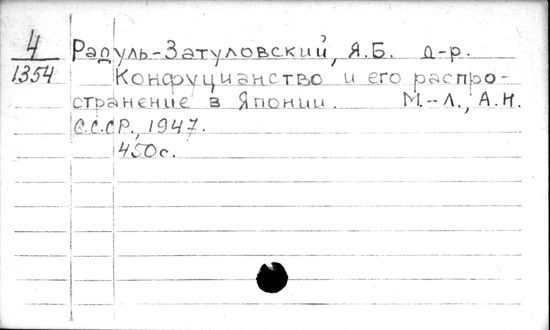 4
1354
Радуль-Затуловский, Я.Б. д-р.
Конфуцианство и его распро-
странение в Японии. М.-Л., А.Н.
С.С.С.Р., 1947.
450с.